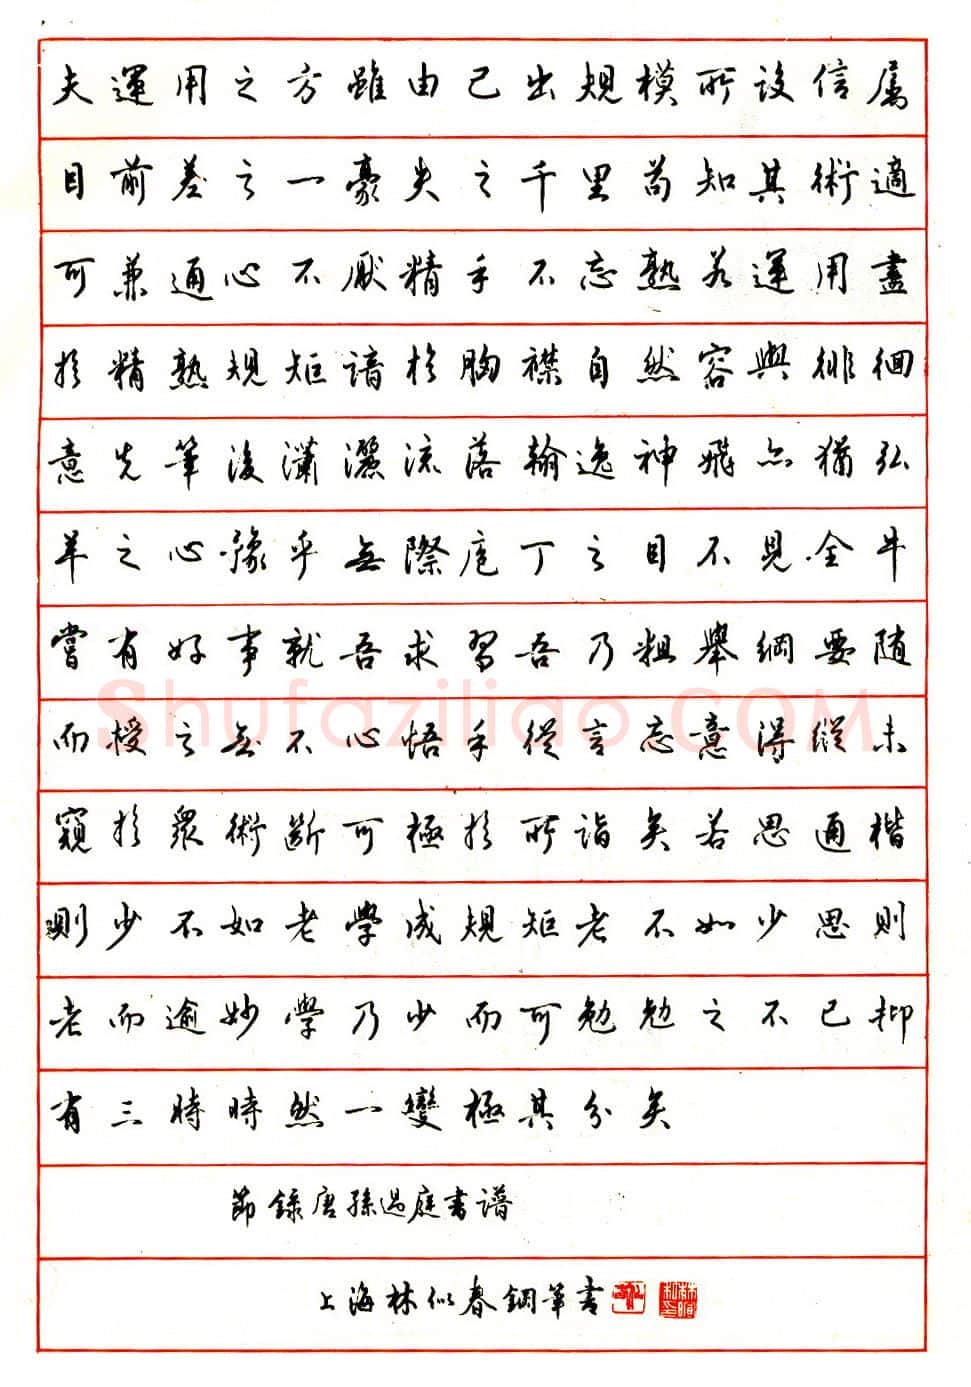 夫運用之方雖由己出規模所設信屬
目前差之一豪失之千里苟知其術適
可兼通心不厭精手不忘熟若運用盡
於精熟規矩諳於胸襟自然容與徘徊
意先筆後瀟灑流落翰逸神飛亦猶弘
羊之心豫乎無際庖丁之目不見全牛
嘗有好事就吾求習吾乃粗舉綱要随
而授之無不心悟手從言忘意得縱未
窺於眾術斷可極於所詣矣若思通楷
則少不如老學成規矩老不如少思則
老而逾妙學乃少而可勉勉之不已抑
有三時時然一變極其分矣
節錄唐孫過庭書譜
上海林似春鋼筆書
Shufaziliao.COM